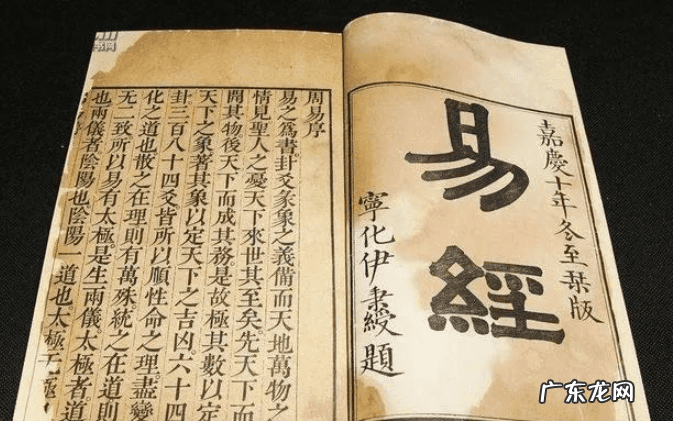 嘉慶十年冬至栞版
易經
寧化伊秉綬題
周易序
易之爲書卦爻彖象之義備而天地萬物之
情見聖人之憂天下來世其至矣先天下而
開其物後天下而成其務是故極其數以定
天下之象著其象以定天下之吉凶六十四
卦三百八十四爻皆所以順性命之理盡變
化之道也散之在理則有萬殊統之在道則
无二致所以易有太極是生兩儀太極者道
也兩儀者陰陽也陰陽一道也太極无極
广东龙网